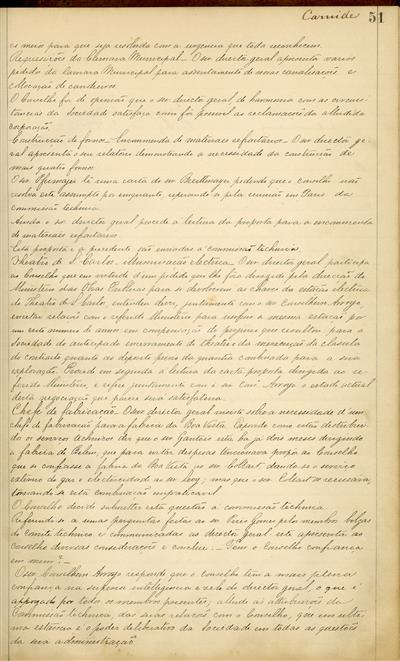 Carnide 51
es meio para que seja resolvida com a urgencia que todos reconhecem.
Requisições da Camara Municipal_ O sr director geral apresenta varios
pedidos da Camara Municipal para assentamento de novas canalisações e
collocação de candieiros.
O Conselho foi de opinião que o sr director geral de harmonia com as circums-
tancias da Sociedade satisfaça como fôr possivel as reclamações da alludida
corporação.
Construcção de fornos_ Encommenda de materiaes refractarios_ O sr director ge-
ral apresenta o seu relatorio demonstrando a necessidade da construcção de
mais quatro fornos.
O sr lê uma carta do sr pedindo que o conselho não
resolva este assumpto por emquanto, esperando a pela reunião em Paris da
commissão technica.
Ainda o sr director geral procede a leitura da proposta para a encommenda
de materiaes refractarios.
Esta proposta e a precedente são enviadas á commissão technica.
Theatro de S. Carlos_ Illuminação electrica_ O sr director geral participa
ao Conselho que em virtude d'um pedido que lhe fôra dirigido pela direcção do
Ministerio das Obras Publicas para se devolverem as chaves da estação electrica
do Theatro de S. Carlos, entendeu dever, juntamente com o sr Conselheiro Arroyo,
encetar relações com o referido Ministerio para explorar a mesma estação por
um certo numero de annos em compensação do prejuizo que resultou para a
Sociedade do antecipado encerramento do theatro e da clausula
do contracto quanto ao deposito previo da quantia combinada para a sua
exploração. Procede em seguida á leitura da carta proposta dirigida ao re-
ferido Ministerio, e refere juntamente com o sr Cons. Arroyo o estado actual
desta negociação que parece será satisfatoria.
Chefe de fabricação_ O sr director geral insiste sobre a necessidade d'um
chefe de fabricação para a fabrica da Boa Vista. Expondo como estão distribui-
dos os serviços technicos diz que o sr está ha já dois mezes dirigindo
a fabrica de Belem, que para evitar despesas tencionava propôr ao Conselho
que se confiasse a fabrica da Boa Vista ao sr Collart, dando-se o serviço
externo do gaz e electricidade ao sr Levy; mas que o sr Collart se recusara,
tornando-se esta combinação impraticavel.
O Conselho decide submetter esta questão á commissão technica.
Referindo-se a umas perguntas feitas ao sr Pires Gomes pelos membros belgas
do comité technico e communicadas ao director geral este apresenta ao
Conselho diversas considerações e conclue: _ Tem o Conselho confiança
em mim? _
O sr Conselheiro Arroyo responde que o Conselho tem a mais plena
confiança na superior intelligencia e zelo do director geral, o que é
approvado por todos os membros presentes, allude ás attribuições da
Commissão technica, das suas relações com o Conselho, que em ulti-
ma o poder deliberativo da Sociedade em todas as questões
da sua administração.